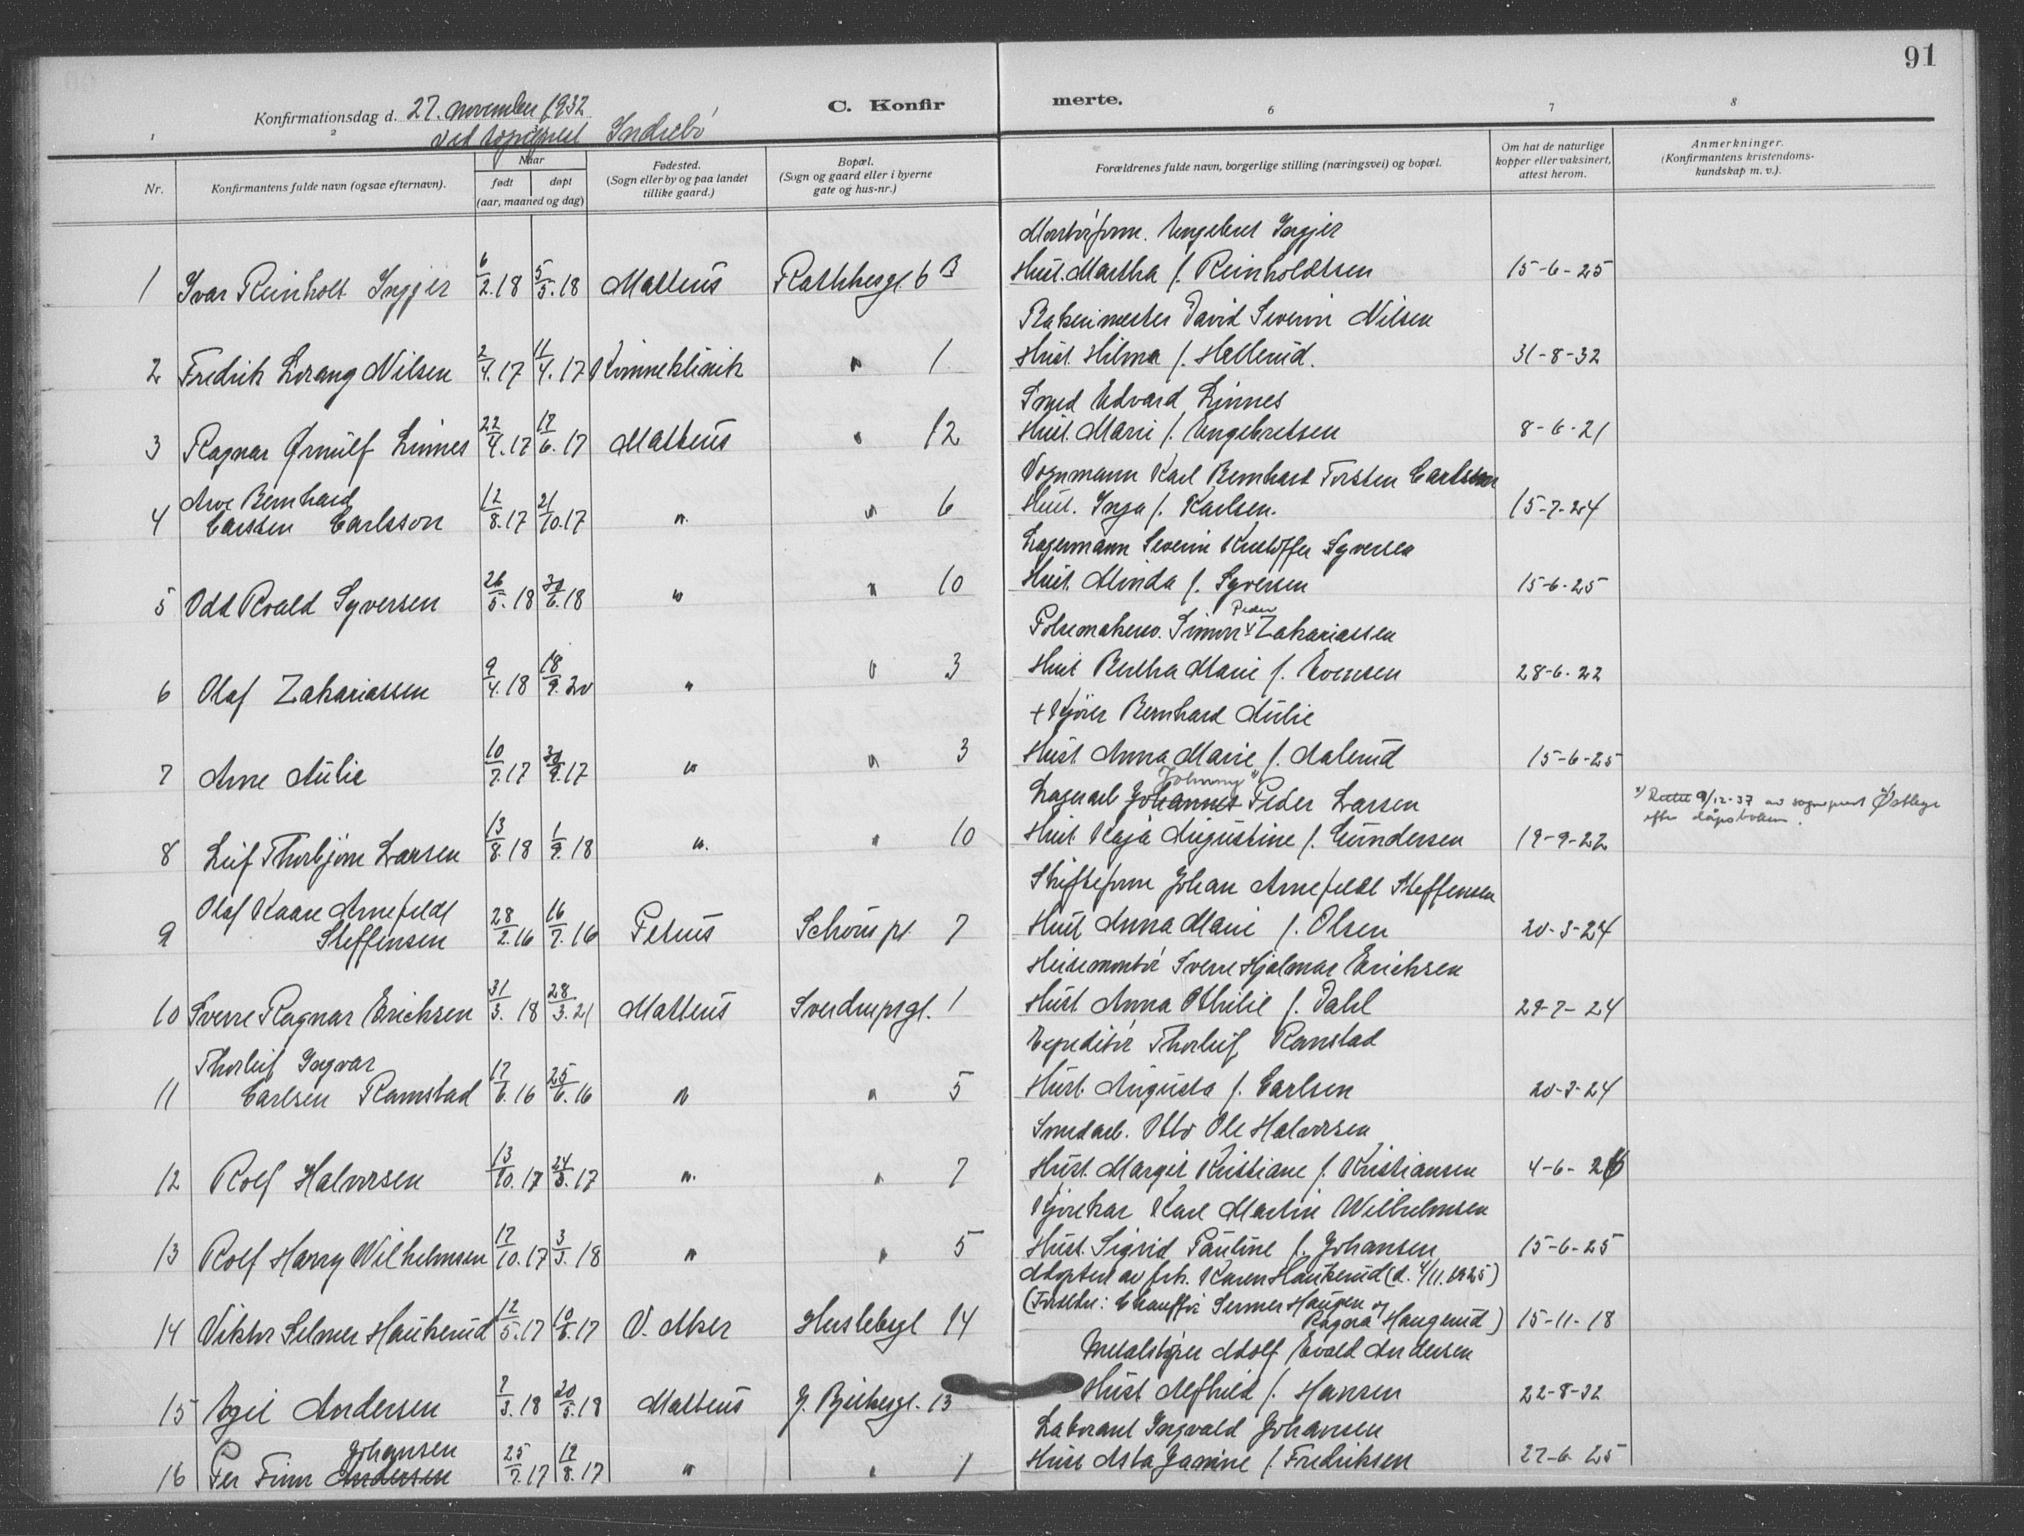 91
Konfirmationsdag d. 27. november 1932
C. Konfirmerte.
ved sogneprest Indrebø
1 2 6 7 8
Nr.
Konfirmantens fulde navn (ogsaa efternavn).
Naar
født døpt
(aar, maaned og dag)
Fødested.
(Sogn eller by og paa landet
tillike gaard.)
Bopæl.
(Sogn og gaard eller i byerne
gate og hus-nr.)
Forældrenes fulde navn, borgerlige stilling (næringsvei) og bopæl.
Om hat de naturlige
kopper eller vaksinert,
attest herom.
Anmerkninger.
(Konfirmantens kristendoms-
kundskap m. v.).
Engebret Ingjer
1 Ivar Reinholt Ingjer 6/2.18 5/5.18 Matteus Rathkesgt. 6 B Hust. Martha f. Reinholdtsen 15-6-25
Bakerimester David Severin Nilsen
2 Fredrik Lorang Nilsen 2/4.17 11/4.17 Kvinneklinik " 1 Hust. Hilma f. Hellerud. 31-8-32
Smed Edvard Linnes
3 Ragnar Ørnulf Linnes 22/4.17 17/6.17 Matteus " 12 Hust. Marie f. Engebretsen 8-6-21
Vognmann Karl Bernhard Torsten Carlsson
4 Arve Bernhard
Carsten Carlsson 12/8.17 21/10.17 " " 6 Hust. Inga f. Karlsen. 15-7-24
Lagermann Severin Kristoffer Syversen
5 Odd Roald Syversen 26/5.18 30/6.18 " " 10 Hust. Minda f. Syversen 15-6-25
Pølsemakersv. Simon Peder Zakariassen
6 Olaf Zakariassen 9/4.18 18/9.20 " " 3 Hust Bertha Marie f. Evensen 28-6-22
+ Kjører Bernhard Aulie
7 Arne Aulie 10/7.17 30/9.17 " " 3 Hust. Anna Marie f. Aalerud 15-6-25
Lagerarb. Johannes Johnny x) Peder Larsen
x) Rettet 9/12-37 av sogneprest Østbye
efter dåpsboken.
8 Leif Thorbjørn Larsen 13/8.18 1/9.18 " " 10 Hust Kaja Augustine f. Gundersen 19-9-22
Skifteform Johan Arnefeldt Steffensen
9 Olaf Kaare Arnefeldt
Steffensen 28/2.16 16/7.16 Petrus Schous pl. 7 Hust Anna Marie f. Olsen 20-3-24
Heisemontør Sverre Hjalmar Erichsen
10 Sverre Ragnar Erichsen 31/3.18 28/3.21 Matteus Sverdrupsgt. 1 Hust. Anna Othilie f. Dahl 29-7-24
Expeditør Thorleif Ramstad
11 Thorleif Ingvar
Carlsen Ramstad 17/6.16 25/6.16 " " 5 Hust. Augusta f. Carlsen 20-3-24
Smedarb. Otto Ole Halvorsen
12 Rolf Halvorsen 13/10.17 24/3.17 " " 7 Hust. Margit Kristiane f. Kristiansen 4-6-26
Kjørekar Karl Martin Wilhelmsen
13 Rolf Harry Wilhelmsen 17/10.17 3/3.18 " " 5 Hust. Sigrid Pauline f. Johansen 15-6-25
Adoptert av frk. Karen Haukerud (d. 4/11.1925)
14 Viktor Selmer Haukerud 12/5.17 10/6.17 V. Aker Huslebygt 14 (Foreldre: Chauffør Selmer Haugen og
Ragna Haugerud) 15-11-18
Metalstøper Adolf Evald Andersen
15 Egil Andersen 7/3.18 20/5.18 Matteus J. Bjelkesgt. 13 Hust Alfhild f. Hansen 22-8-32
Laborant Ingvald Johansen
16 Per Finn Andersen Johansen 25/7.17 19/8.17 " " 1 Hust Asta Jamine f. Fredriksen 27-6-25